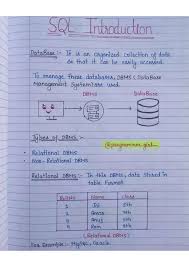 SQL Introduction
DataBase :- It is an organized collection of data
so that it can be easily accessed.
To manage these databases, DBMS (DataBase
Management System) are used.
DBMS
DataBase
Types of DBMS :-
@programmer_girl_
Relational DBMS
Non-Relational DBMS
Relational DBMS :- In this DBMS, data stored in
table format
RollNo Name Class
1 5th
2 9th
3 5th
4 Ram 9th
(Relational DBMS)
Example :- MySQL, Oracle